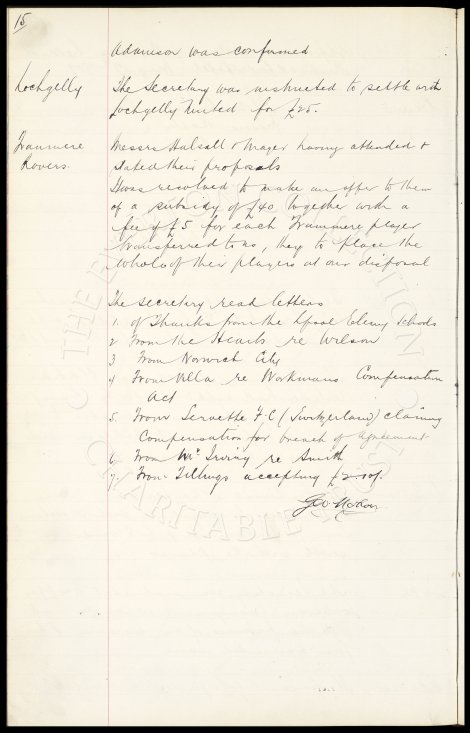 15
Adamson was confirmed
Lochgelly
The Secretary was instructed to settle with
Lochgelly United for £25.
Tranmere
Rovers.
Messrs Halsall & having attended &
stated their proposals
It was resolved to make an offer to them
of a subsidy of £40 together with a
fee of £5 for each Tranmere player
transferred to us, they to place the
whole of their players at our disposal
The Secretary read letters
1. of Thanks from the Lpool Elemy Schools
2 From the Hearts re Wilson
3 From Norwich City
4 From Villa re Workmans Compensation
Act
5. From Servette F.C (Switzerland) claiming
Compensation for breach of agreement
6. From Mr Irving re Smith
7. From Tillings accepting £2.10/.
THE EVERTON COLLECTION
CHARITABLE TRUST